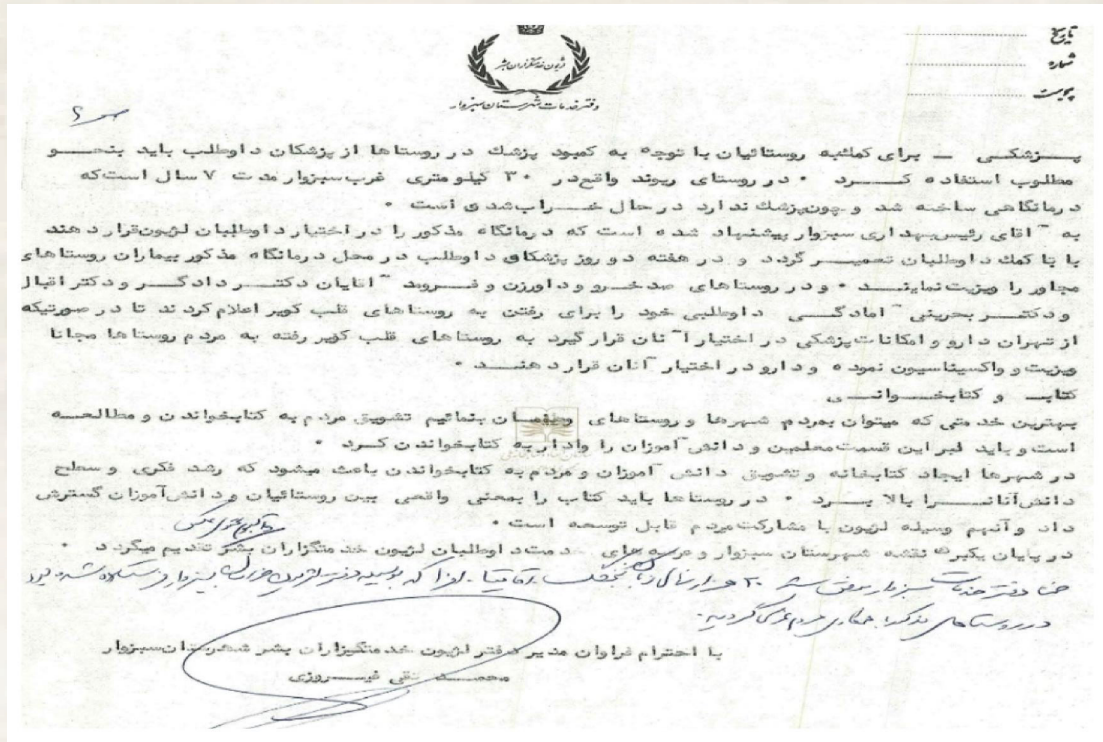 تاریخ
شماره
پیوست
لژیون خدمتگزاران بشر
دفتر خدمات شهرستان سبزوار
پـــزشکـــی ــ برای کمک به روستائیان با توجه به کمبود پزشك در روستاها از پزشکان داوطلب باید بنحـــو
مطلوب استفاده کـــرد ۰ در روستای ریوند واقع در ۳۰ کیلومتری غرب سبزوار مدت ۷ سال است که
درمانگاهی ساخته شد و چون پزشك ندارد در حال خـــراب شدن است ۰
به آقای رئیس بهداری سبزوار پیشنهاد شده است که درمانگاه مذکور را در اختیار داوطلبان لژیون قرار دهند
با کمك داوطلبان تعمیـــر گردد و در هفته دو روز پزشکان داوطلب در محل درمانگاه مذکور بیماران روستاهای
مجاور را ویزیت نماینـــد ۰ و در روستاهای صدخـــرو و داورزن و فـــرومد آقایان دکتـــر دادگـــر و دکتر اقبال
و دکتـــر بحرینی آمادگـــی داوطلبی خود را برای رفتن به روستاهای قلب کویر اعلام کردند تا در صورتیکه
از تهران دارو و امکانات پزشکی در اختیار آنان قرار گیرد به روستاهای قلب کویر رفته به مردم روستاها مجانا
ویزیت و واکسیناسیون نموده و دارو در اختیار آنان قرار دهنـــد ۰
کتاب و کتابخـــوانـــی
بهترین خدمتی که میتوان بمردم شهرها و روستاهای بنمائیم تشویق مردم به کتابخواندن و مطالعـــه
است و باید در این قسمت معلمین و دانش آموزان را وادار به کتابخواندن کـــرد ۰
در شهرها ایجاد کتابخانه و تشویق دانش آموزان و مردم به کتابخواندن باعث میشود که رشد فکری و سطح
دانش آنانـــرا بالا بـــرد ۰ در روستاها باید کتاب را بمعنی واقعی بین روستائیان و دانش آموزان گسترش
داد و آنهم وسیله لژیون با مشارکت مردم قابل توسعه است ۰
در پایان یکبرگ نقشه شهرستان سبزوار و خدمت داوطلبان لژیون خدمتگزاران بشر تقدیم میگردد ۰
ضمنا دفتر خدمات سبزوار موفق شد ۲۰ هزار که بوسیله دفتر لژیون خراسان به سبزوار فرستاده شده بود
در روستاهای مذکور با همکاری مردم
با احترام فراوان مدیر دفتر لژیون خدمتگزاران بشر شهرستان سبزوار
محمـــد تقی فیـــروزی